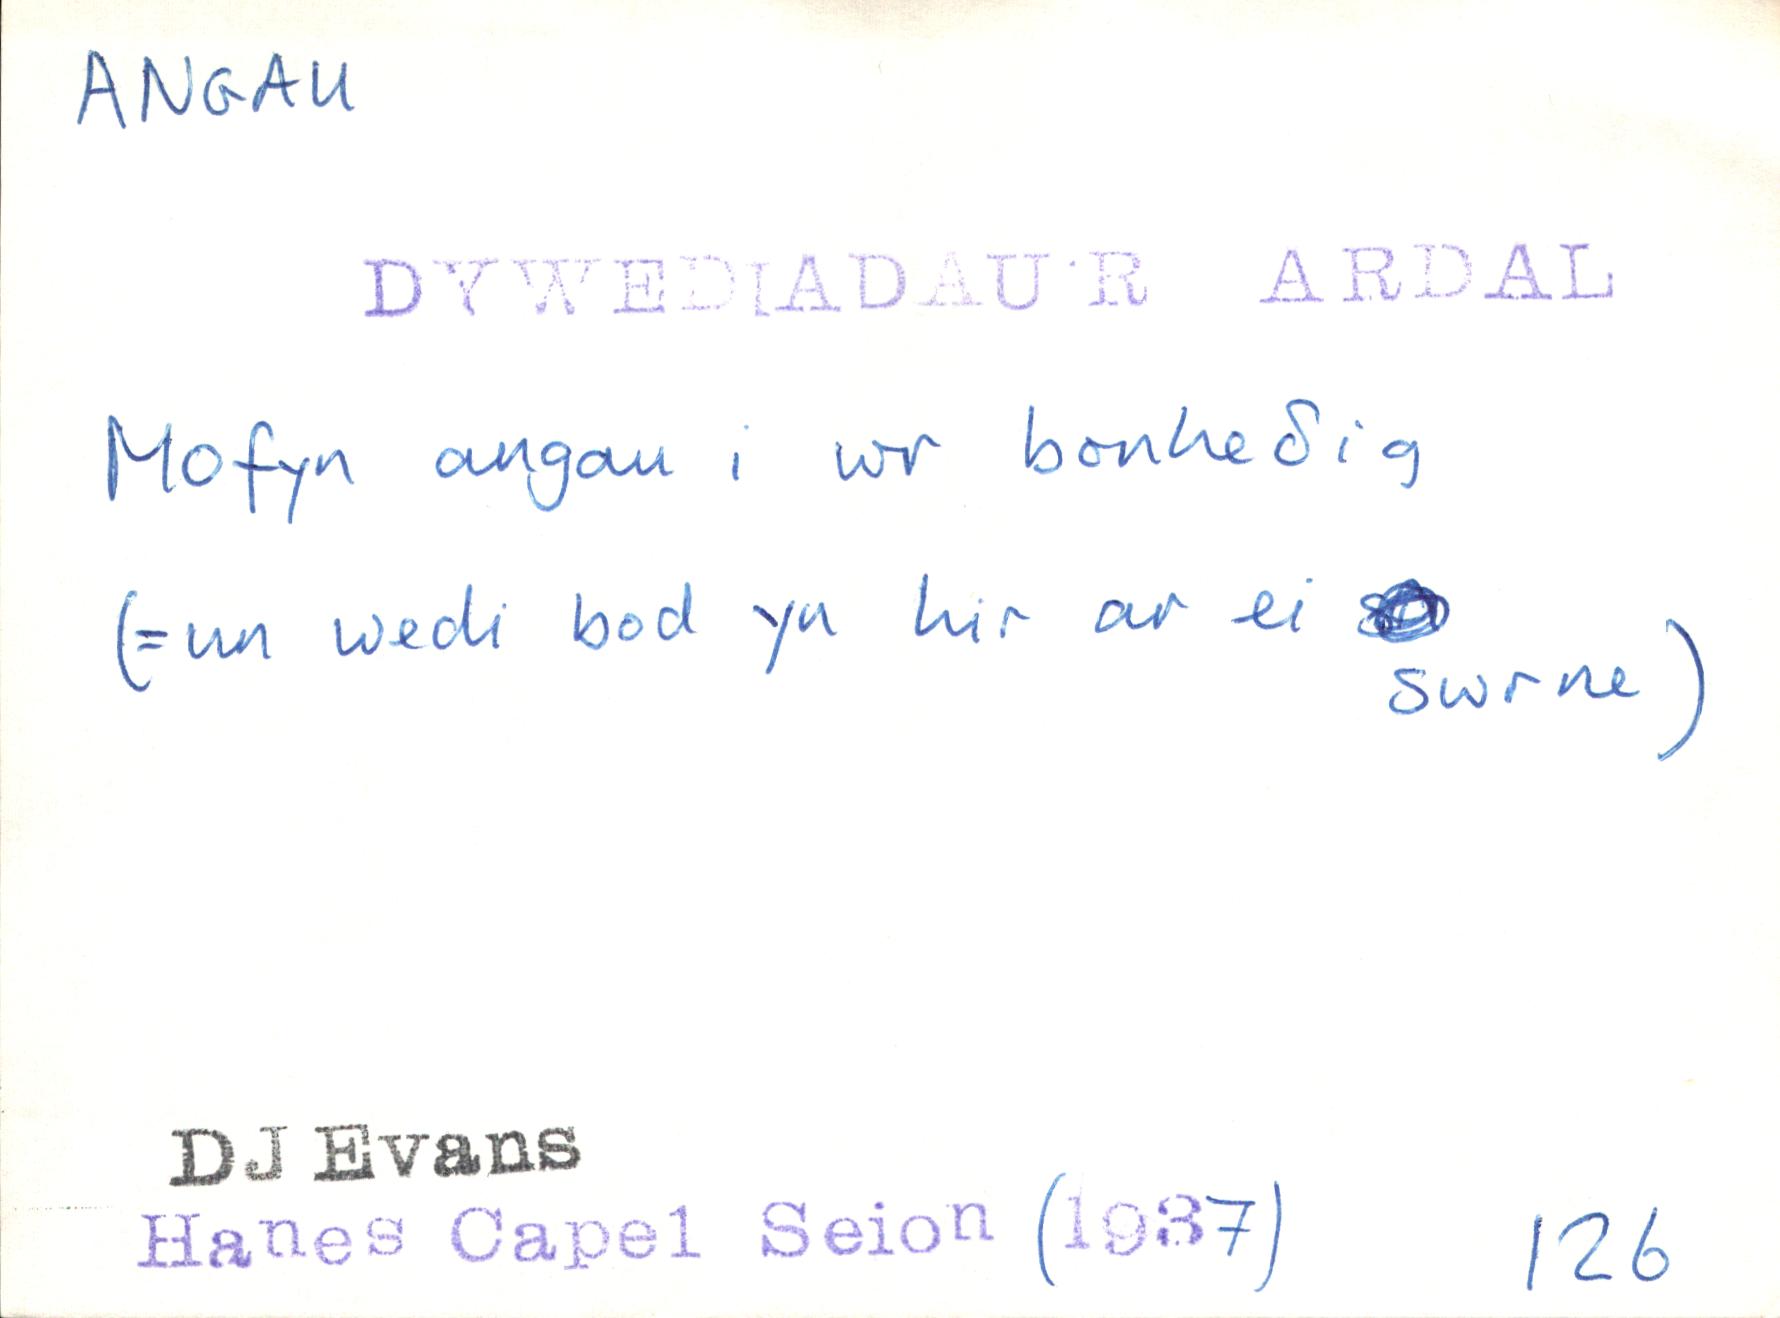 ANGAU
DYWEDIADAU'R ARDAL
Mofyn angau i wr bonheδig
(=un wedi bod yn hir ar ei
swrne)
DJ Evans
Hanes Capel Seion (1937) 126